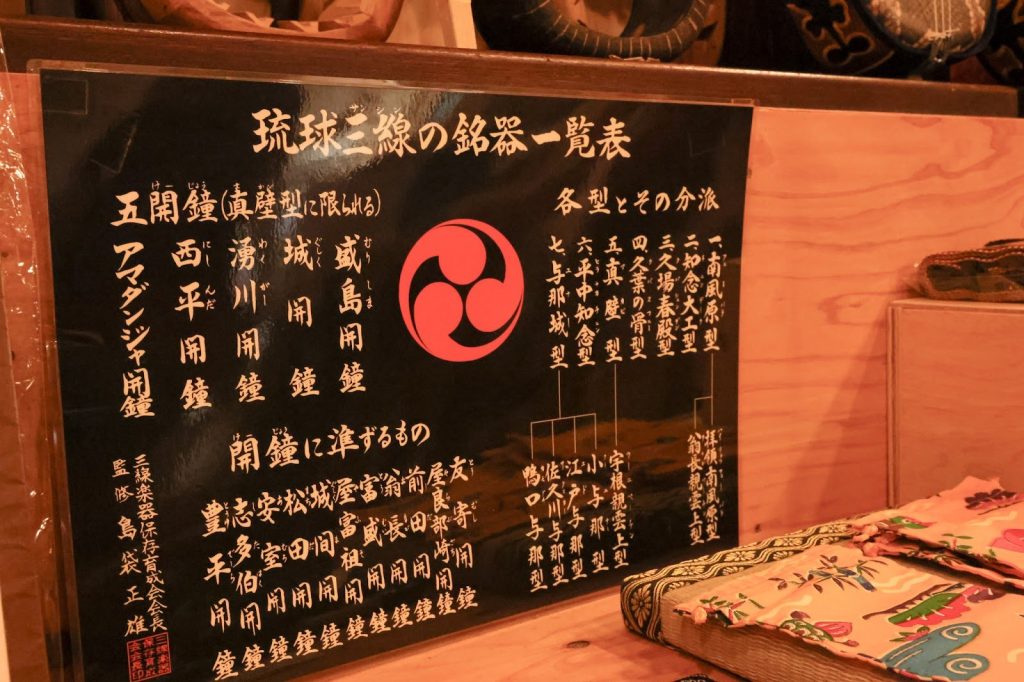 琉球三線の銘器一覧表
サンシン
各型とその分派
一、南風原型
二、知念大工型
三、久場春殿型
四、久葉の骨型
五、真壁型
六、平中知念型
七、与那城型
拝領南風原型
翁長親雲上型
宇根親雲上型
小与那型
江戸与那型
佐久川与那型
鴨口与那型
五開鐘(真壁型に限られる)
盛島開鐘
城開鐘
湧川開鐘
西平開鐘
アマダンジャ開鐘
開鐘に準ずるもの
友寄開鐘
屋良部崎開鐘
前田開鐘
翁長開鐘
富盛開鐘
屋富祖開鐘
城間開鐘
松田開鐘
安室開鐘
志多伯開鐘
豊平開鐘
三線楽器保存育成会会長
監修 島袋正雄